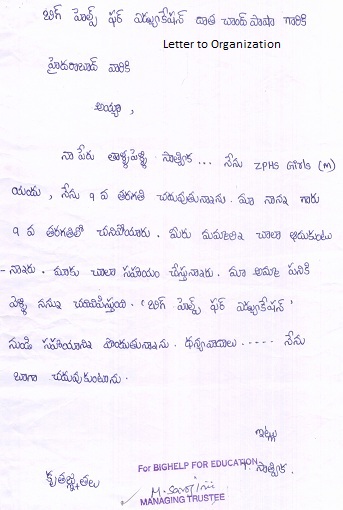 బిగ్ హెల్ప్ ఫర్ ఎడ్యుకేషన్ దాత చాంద్ పాషా గారికి
Letter to Organization
హైదరాబాద్ వారికి
అయ్యా ,
నా పేరు తాళ్ళపెళ్ళి సాత్విక ... నేను ZPHS Girls (M)
యందు , నేను 9 వ తరగతి చదువుతున్నాను. మా నాన్న గారు
9 వ తరగతిలో చనిపోయారు. మీరు మమ్మల్ని చాలా ఆదుకుంటు
- న్నారు. మాకు చాలా సహాయం చేస్తున్నారు. మా అమ్మ పనికి
వెళ్ళి నన్ను చదివిపిస్తుంది. 'బిగ్ హెల్ప్ ఫర్ ఎడ్యుకేషన్'
నుండి సహాయాన్ని పొందుతున్నాను. ధన్యవాదాలు ..... నేను
బాగా చదువుకుంటాను.
ఇట్లు
For BIGHELP FOR EDUCATION
T. సాత్విక.
కృతజ్ఞతలు
M. Sarojini
MANAGING TRUSTEE